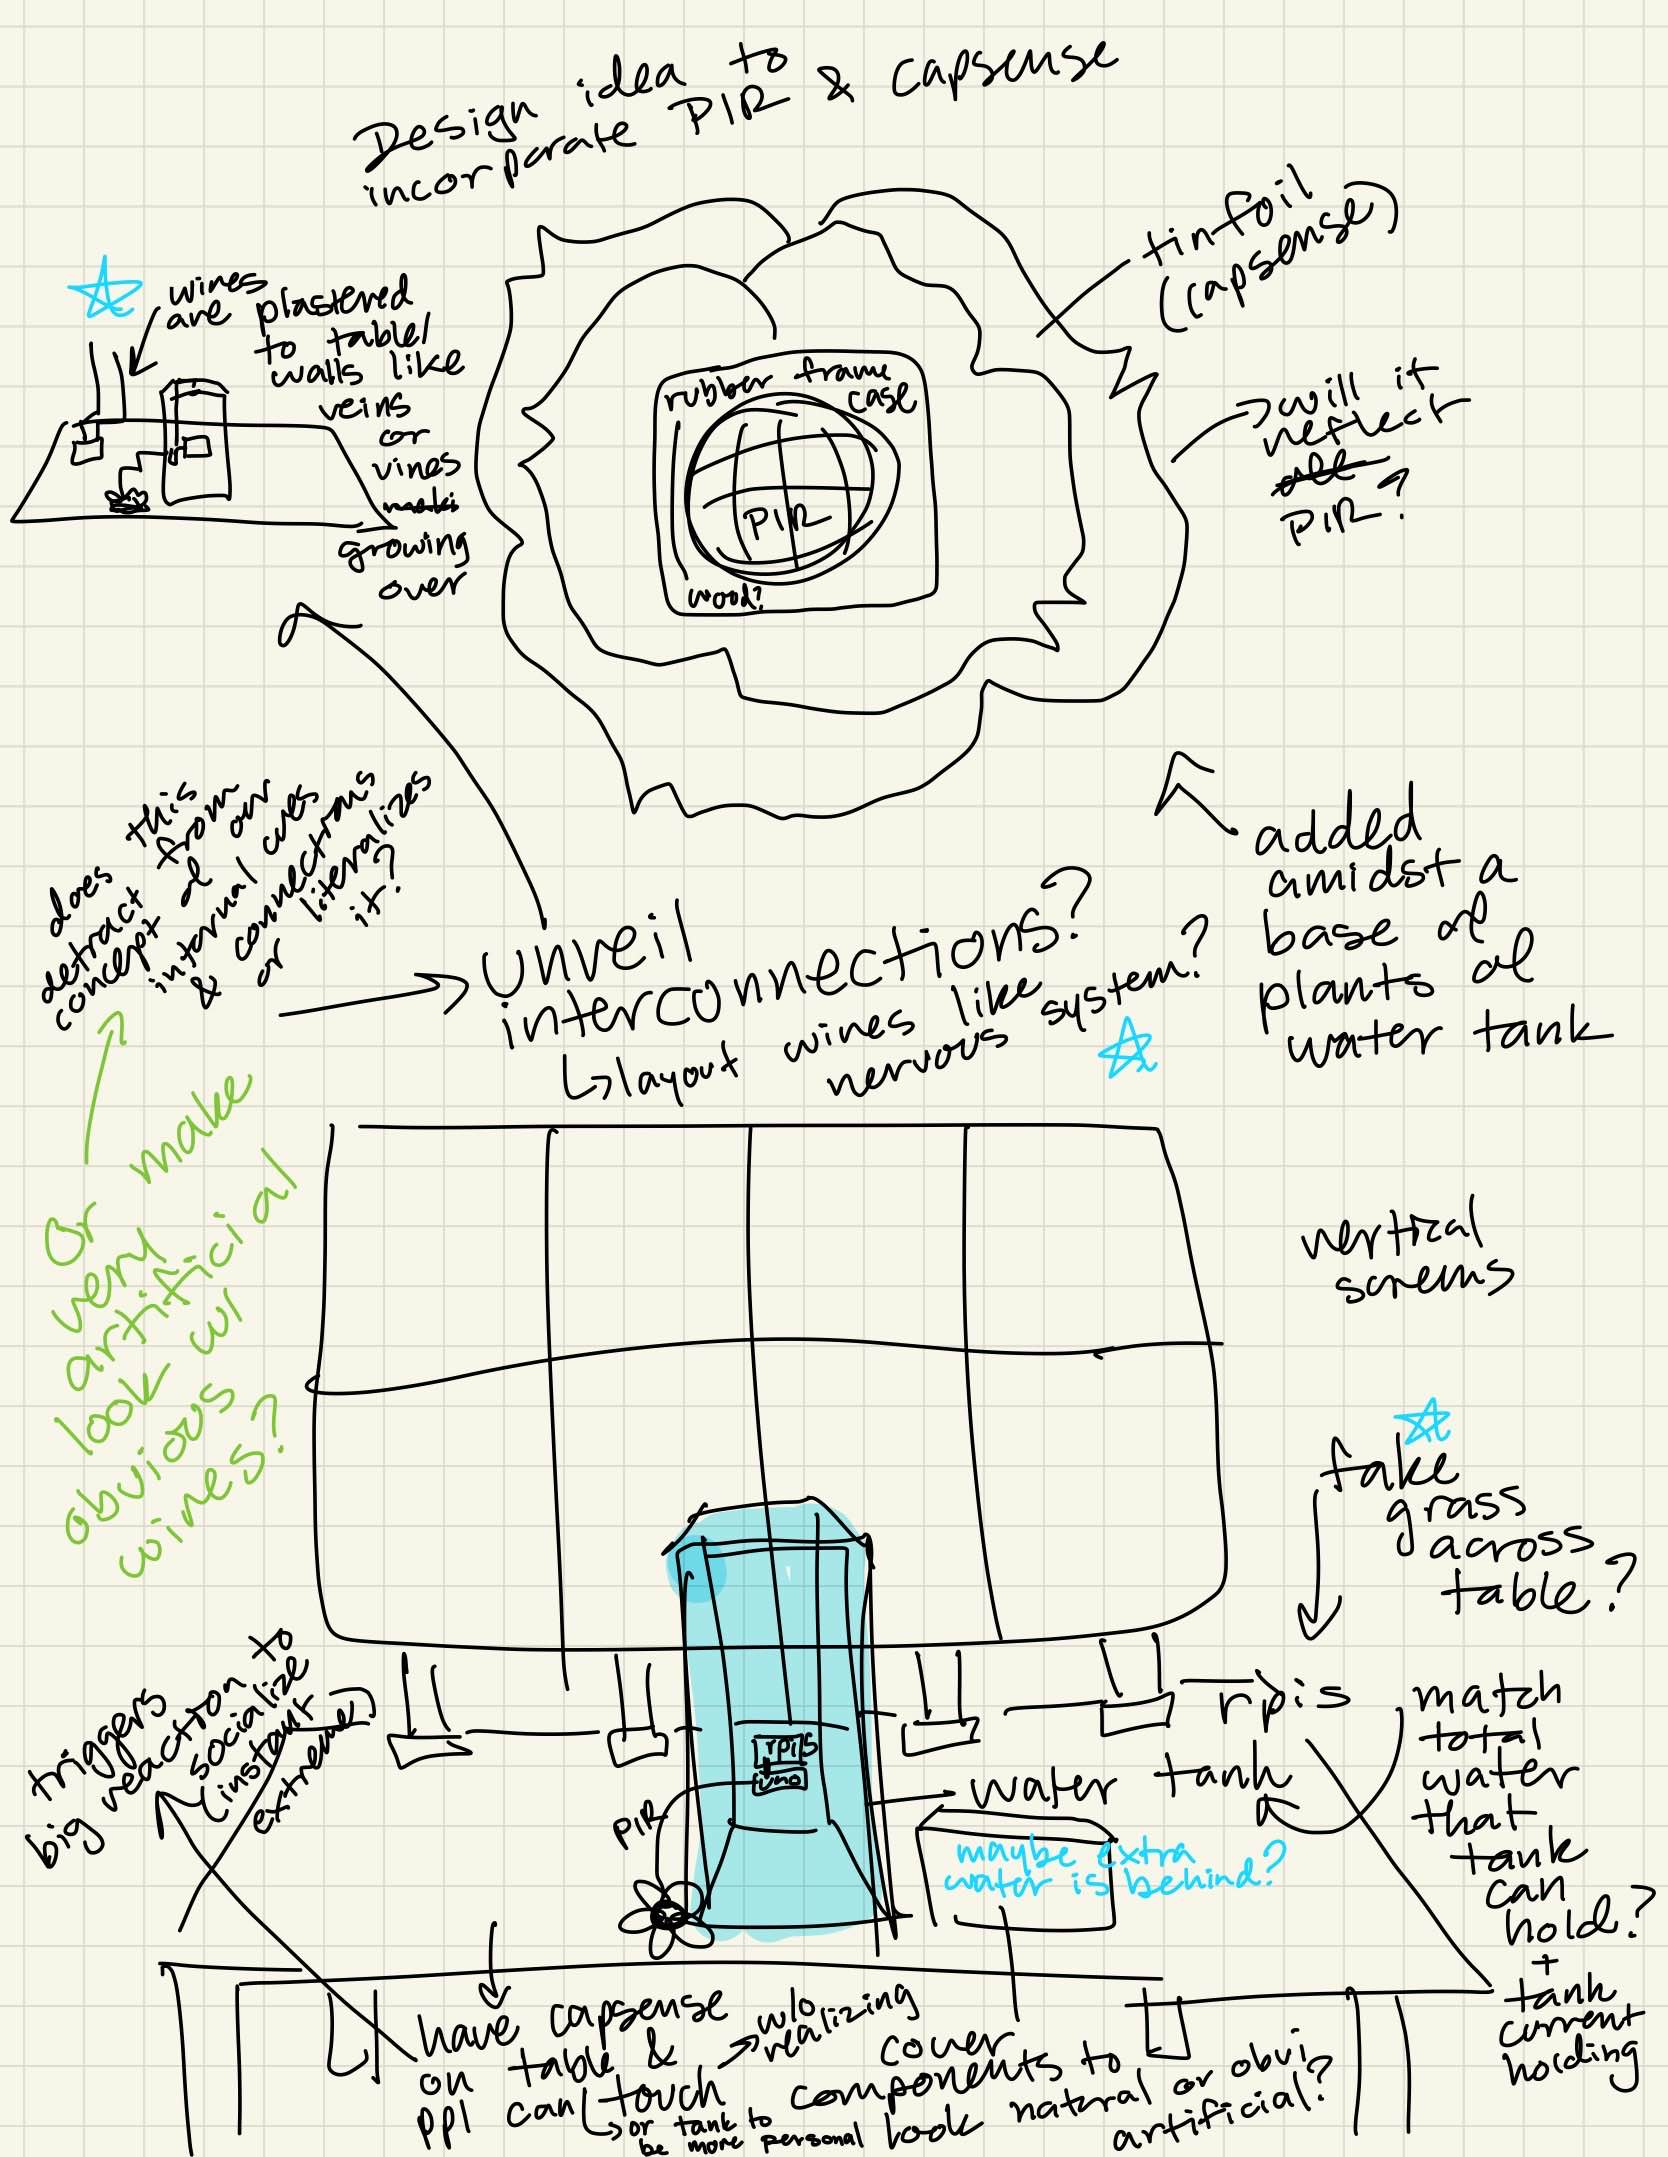 Design idea to
incorporate PIR & Capsense
tinfoil
(capsense)
wires
are plastered
to table/
walls like
veins
or
vines
growing
over
rubber frame
case
PIR
wood?
will it
reflect
PIR?
added
amidst a
base of
plants of
water tank
does this
detract from
concept of our
internal cues
& connections
or literalizes
it?
Unveil
interconnections?
layout wires like
nervous system?
Or make
very
artificial
look w/
obvious
wires?
vertical
screens
fake
grass
across
table?
triggers
big reaction to
socialize
(instant
extreme)
rpis
rpis
uno
PIR
water tank
maybe extra
water is behind?
match
total
water
that
tank
can
hold?
+
tank
current
holding
have capsense
on table &
ppl can touch
w/o
realizing
or tank to
be more personal
cover
components to
look natural or obvi
artificial?